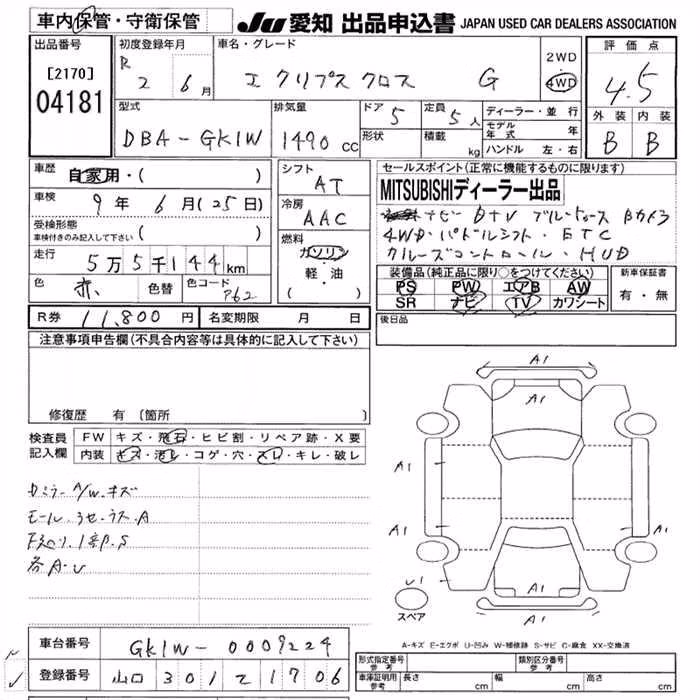 車内保管・守衛保管
JU 愛知 出品申込書 JAPAN USED CAR DEALERS ASSOCIATION
出品番号
[2170]
04181
初度登録年月
R 2年 6月
車名・グレード
エクリプスクロス G
2WD
4WD
評価点
4.5
型式
DBA-GK1W
排気量
1490 cc
ドア 5
形状
定員 5人
積載 kg
ディーラー・並行
モデル年式 年
ハンドル 左・右
外装 内装
B B
車歴 自家用・( )
車検 9年 6月(25日)
受検形態
車検付きのみ記入して下さい ( )
走行 5万5千144km
色 赤 色替 色コード P62
シフト AT
冷房 AAC
燃料
ガソリン
軽・油
( )
セールスポイント(正常に機能するものに限ります)
MITSUBISHIディーラー出品
ナビ DTV ブルートゥース Bカメラ
4WD・パドルシフト・ETC
クルーズコントロール・HUD
装備品(純正品に限り○をつけてください)
PS PW エアB AW
SR ナビ TV カワシート
新車保証書
有・無
R券 11,800円 名変期限 月 日
後日品
注意事項申告欄(不具合内容等は具体的に記入して下さい)
修復歴 有(箇所 )
検査員記入欄
FW キズ・飛石・ヒビ割・リペア跡・X要
内装 キズ・汚レ・コゲ・穴・スレ・キレ・破レ
Dミラー A/W キズ
モール
各A・U
A1
A1
A1
A1
A1
A1
U1
A1
A1
スペア
A-キズ E-エクボ U-凹み W-補修跡 S-サビ C-腐食 XX-交換済
車台番号 GK1W-0009224
登録番号 山口 301 て 1706
形式指定番号 参考
類別区分番号 参考
車庫証明用 参考 長さ cm 幅 cm 高さ cm